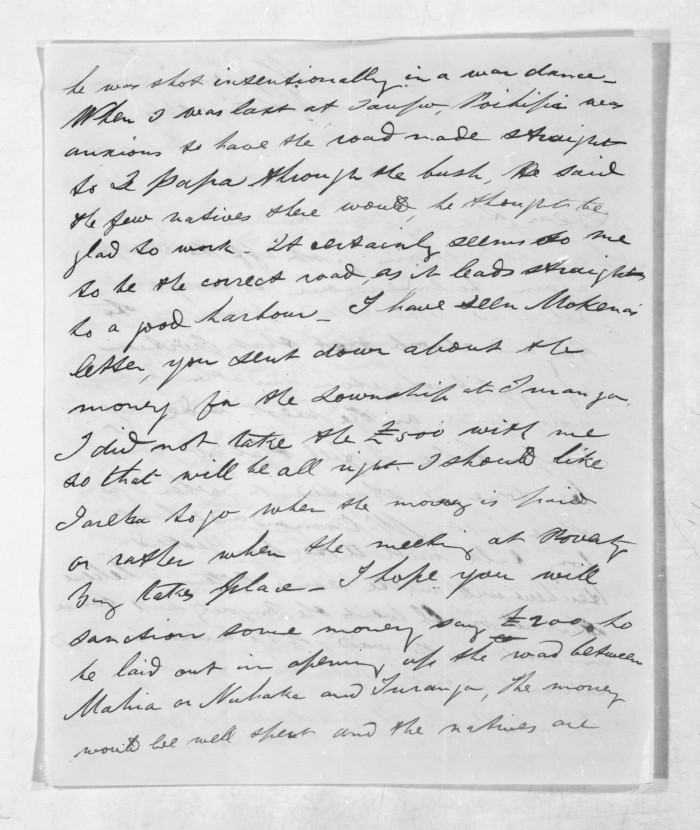 he was shot intentionally in a war dance _
When I was last at Taupo, Poihipi was
anxious to have the road made straight
to Te Papa through the bush, He said
the few natives there would, he thought be
glad to work. It certainly seems to me
to be the correct road, as it leads straight
to a good harbour _ I have seen Mokena's
letter, you sent down about the
money for the Township at Turanga,
I did not take the £500 with me
so that will be all right I should like
Tareha to go when the money is paid
or rather when the meeting at Poverty
Bay takes place _ I hope you will
sanction some money say £200, to
be laid out in opening up the road between
Mahia or Nuhaka and Turanga, The money
would be well spent and the natives are